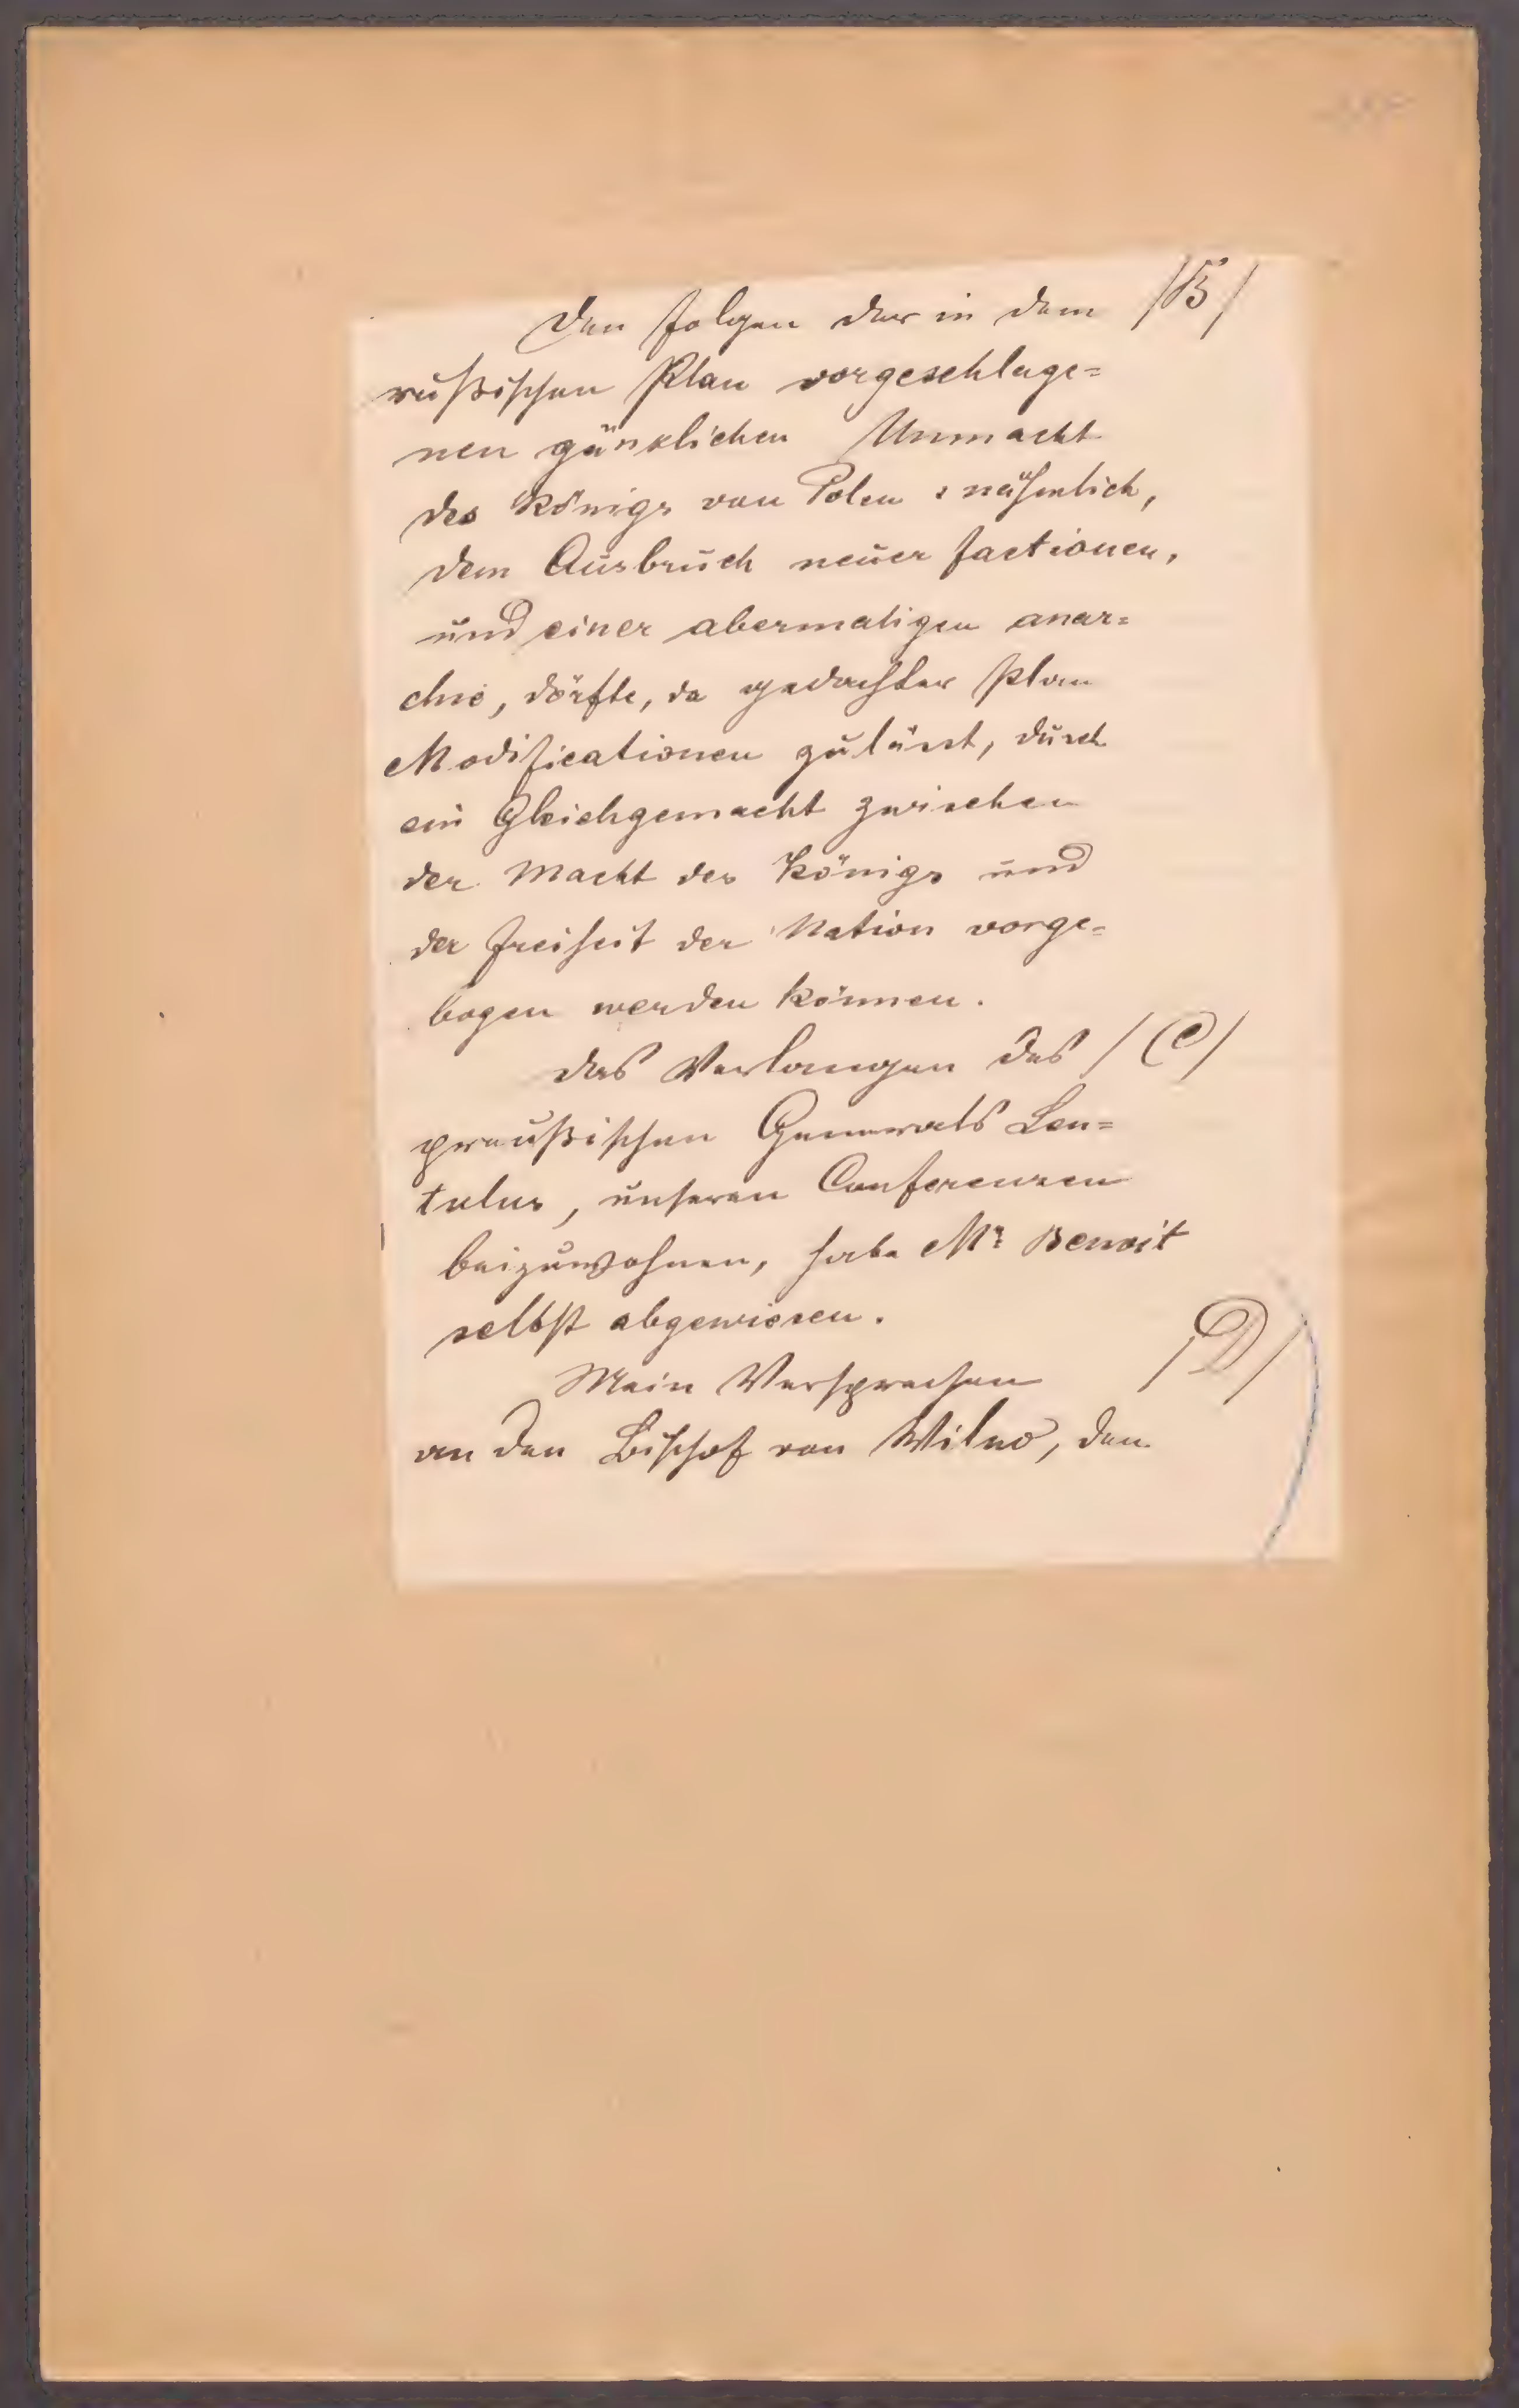 Den Folgen der in dem /B/
rußischen Plan vorgeschlage=
nen gänzlichen Unmacht
des Königs von Polen: nähmlich,
dem Ausbruch neuer Factionen,
und einer abermaligen anar=
chie, dörfte, da gedachter Plan
Modificationen zulässt, durch
ein Gleichgemacht zwischen
der Macht des Königs und
der Freiheit der Nation vorge=
bogen werden können.
Das Verlangen des /C/
preußischen Generals Len=
tulus, unseren Conferenzen
beizuwohnen, habe Mr Benoit
selbst abgewiesen.
Mein Versprechen /D/
an den Bischof von Wilno, den